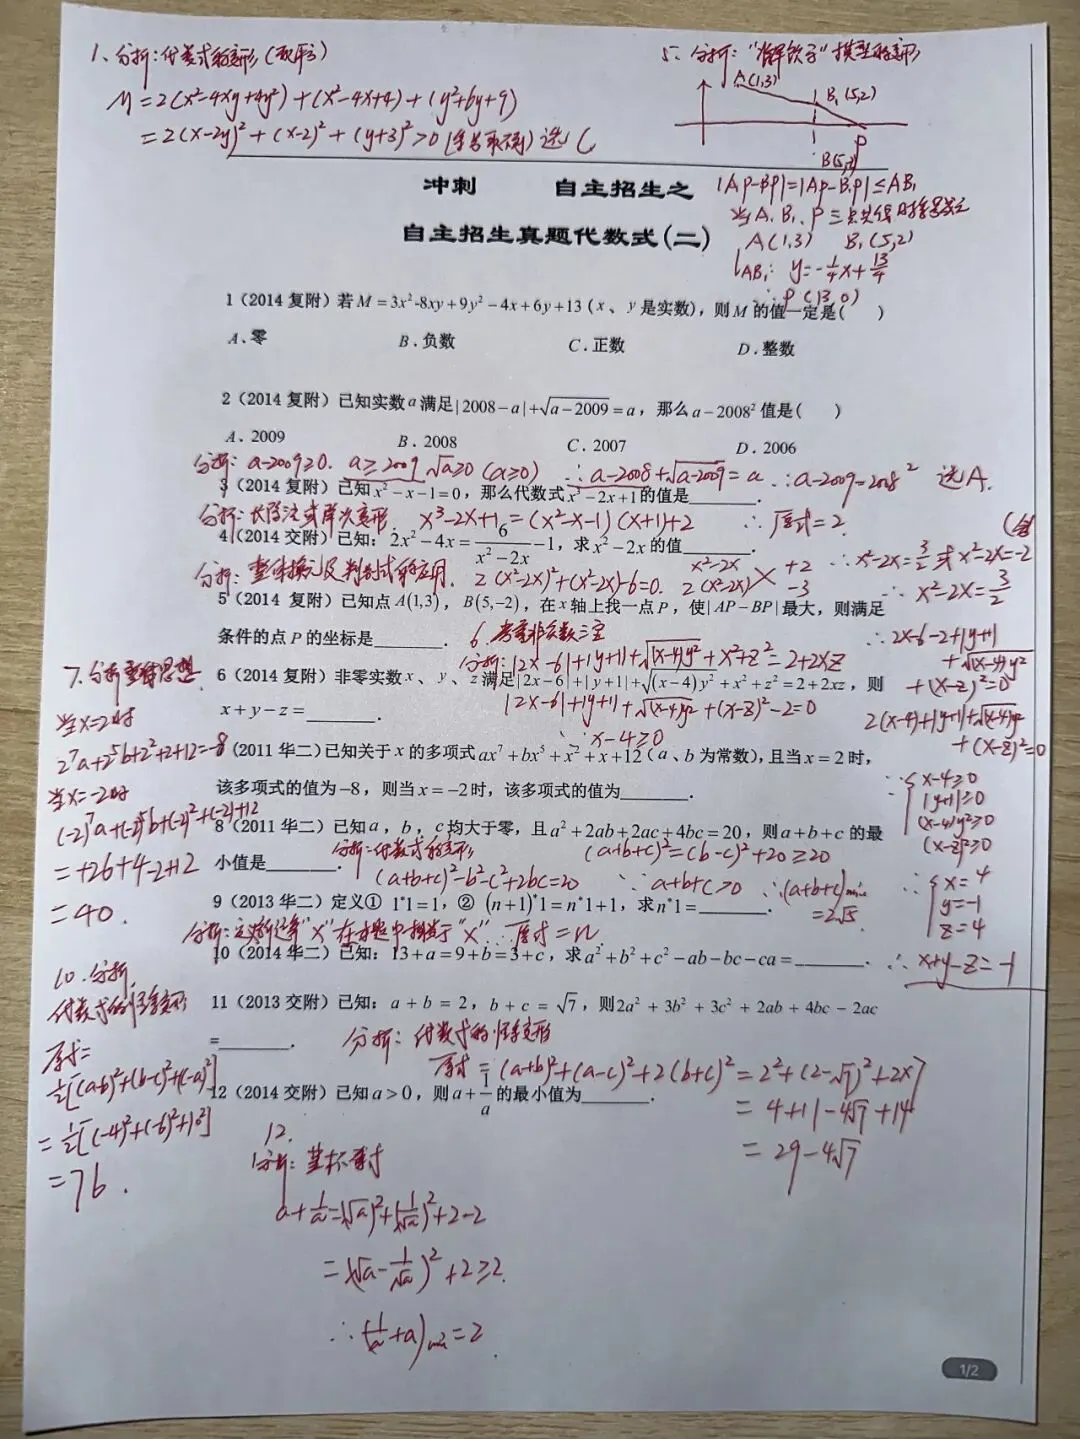 1、分析：代数式的变形（配方）
M=2(x²-4xy+4y²)+(x²-4x+4)+(y²+6y+9)
=2(x-2y)²+(x-2)²+(y+3)²>0 选C
5、分析："将军饮马"模型的变形
A(1,3)
B₁(5,2)
P
|AP-BP|=|AP-B₁P|≤AB₁
当A、B₁、P三点共线时
A(1,3) B₁(5,2)
lAB₁: y=-1/4x+13/4
∴P(13,0)
冲刺 自主招生之
自主招生真题代数式(二)
1（2014 复附）若M=3x²-8xy+9y²-4x+6y+13（x、y是实数），则M的值一定是( )
A、零 B.负数 C.正数 D.整数
2（2014 复附）已知实数a满足|2008-a|+√(a-2009)=a，那么a-2008²值是( )
A、2009 B.2008 C.2007 D.2006
分析：a-2009≥0. a≥2009 √a≥0 (a≥0) ∴a-2008+√(a-2009)=a ∴a-2009=2008² 选A.
3（2014 复附）已知x²-x-1=0，那么代数式x³-2x+1的值是________.
分析：长除法或降次变形. x³-2x+1=(x²-x-1)(x+1)+2 ∴原式=2.
4（2014 交附）已知：2x²-4x=6/(x²-2x)-1，求x²-2x的值________.
分析：整体换元及判别式的应用. 2(x²-2x)²+(x²-2x)-6=0.
x²-2x +2
2(x²-2x) -3
∴x²-2x=3/2或x²-2x=-2
∴x²-2x=3/2
5（2014 复附）已知点A(1,3)，B(5,-2)，在x轴上找一点P，使|AP-BP|最大，则满足
条件的点P的坐标是________.
6（2014 复附）非零实数x、y、z满足|2x-6|+|y+1|+√((x-4)y²)+x²+z²=2+2xz，则
x+y-z=________.
6.考查非负数
分析：|2x-6|+|y+1|+√((x-4)y²)+x²+z²=2+2xz
|2x-6|+|y+1|+√((x-4)y²)+(x-z)²-2=0
∵x-4≥0
∴2x-6-2+|y+1|
+√((x-4)y²)
+(x-z)²=0
2(x-4)+|y+1|+√((x-4)y²)
+(x-z)²=0
∵x-4≥0
|y+1|≥0
(x-4)y²≥0
(x-z)²≥0
∴x=4
y=-1
z=4
∴x+y-z=-1
(2011 华二)已知关于x的多项式ax⁷+bx⁵+x²+x+12（a、b为常数），且当x=2时，
该多项式的值为-8，则当x=-2时，该多项式的值为________.
7.分析整体思想
当x=2时
2⁷a+2⁵b+2²+2+12=-8
当x=-2时
(-2)⁷a+(-2)⁵b+(-2)²+(-2)+12
=+26+4-2+12
=40.
8（2011 华二）已知a，b，c均大于零，且a²+2ab+2ac+4bc=20，则a+b+c的最
小值是________.
分析：代数式的变形
(a+b+c)²-b²-c²+2bc=20
(a+b+c)²=(b-c)²+20≥20
∵a+b+c>0 ∴(a+b+c)min
=2√5
9（2013 华二）定义① 1*1=1，② (n+1)*1=n*1+1，求n*1=________.
∴原式=n
10（2014 华二）已知：13+a=9+b=3+c，求a²+b²+c²-ab-bc-ca=________.
10.分析
代数式的恒等变形
原式=
1/2[(a-b)²+(b-c)²+(c-a)²]
=1/2[(-4)²+(-6)²+10²]
=76.
11（2013 交附）已知：a+b=2，b+c=√7，则2a²+3b²+3c²+2ab+4bc-2ac
=________.
分析：代数式的恒等变形
原式=(a+b)²+(a-c)²+2(b+c)²=2²+(2-√7)²+2×7
=4+11-4√7+14
=29-4√7
12（2014 交附）已知a>0，则a+1/a的最小值为________.
12.
分析：基本不等式
a+1/a=(√a)²+(1/√a)²+2-2
=(√a-1/√a)²+2≥2.
∴(1/a+a)min=2
1/2